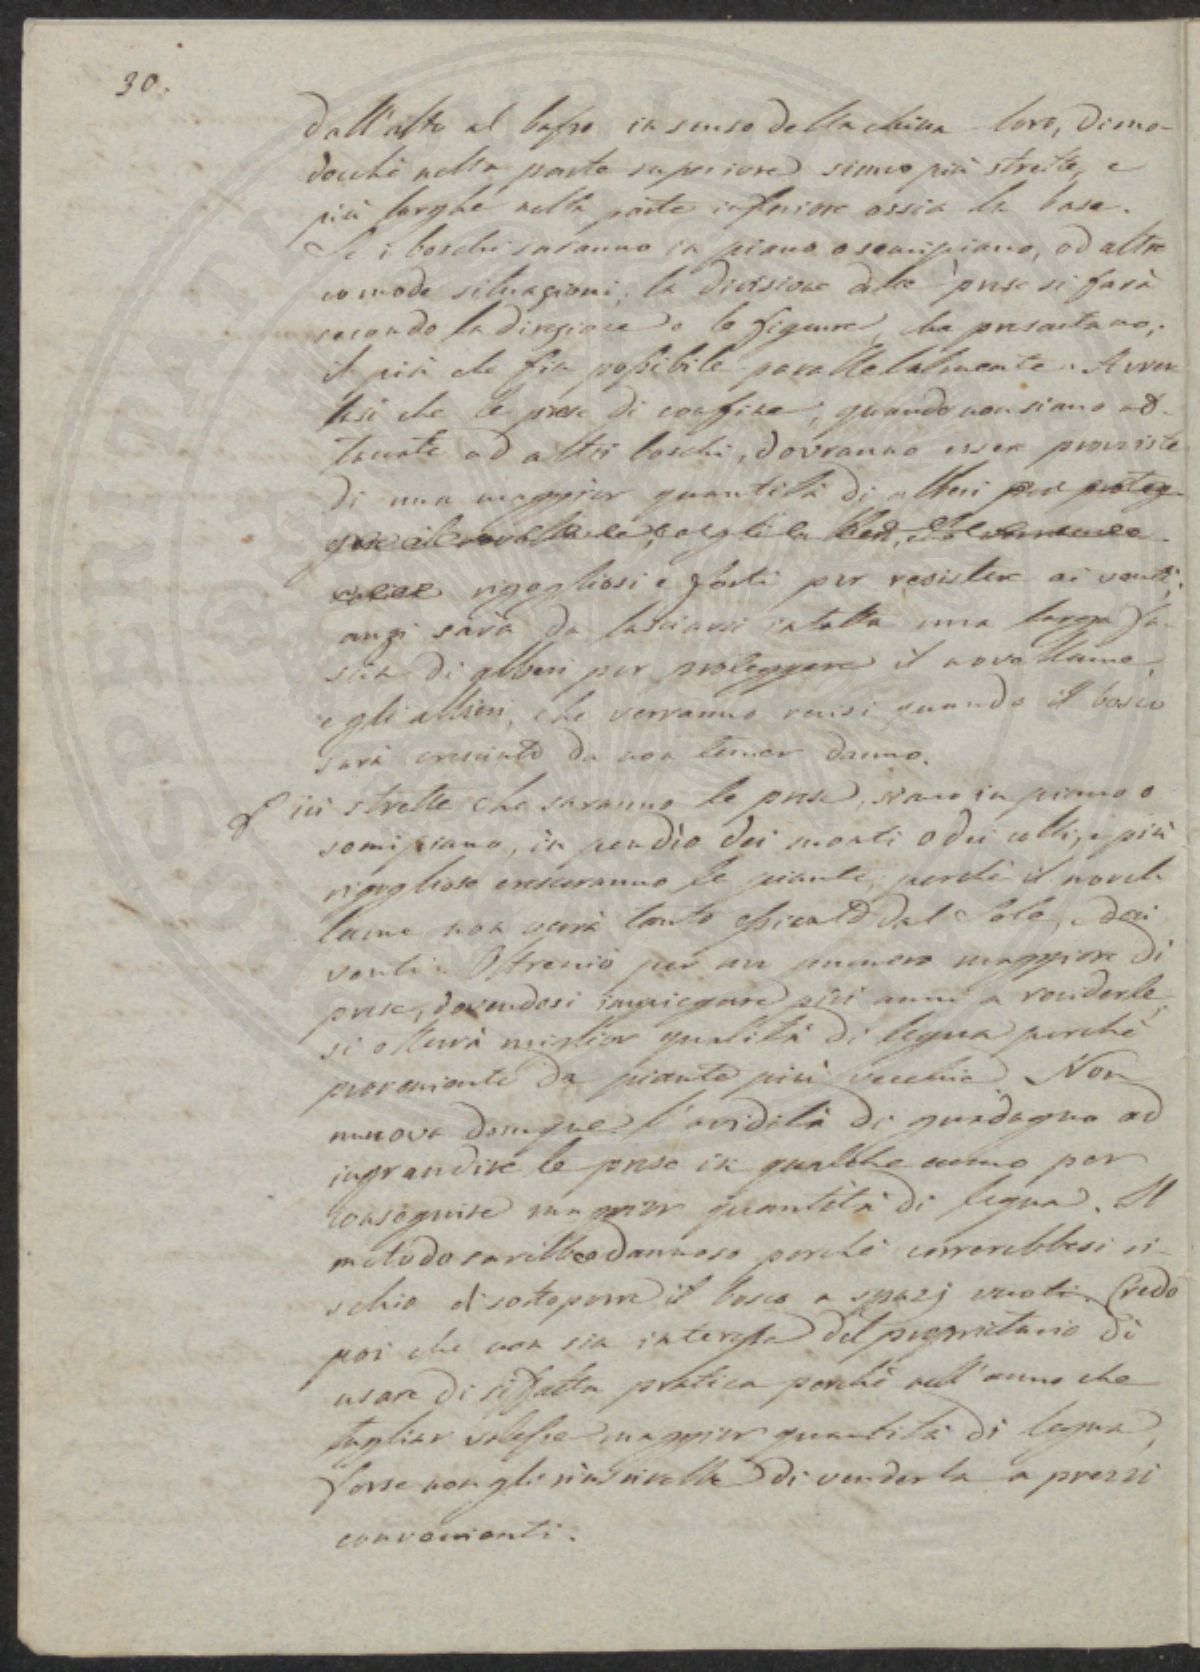 30.
dall'alto al basso in senso della china loro, dimo-
dochè nella parte superiore sieno più strette, e
più larghe nella parte inferiore ossia la base.
Se i boschi saranno in piano o semipiano, od altre
comode situazioni, la divisione delle prese si farà
secondo la direzione e le figure, che presentano,
il più che fia possibile parallelalmente. Avver
tasi che le prese di confine, quando non siano at-
tacate ad altri boschi, dovranno esser provviste
di una maggior quantità di alberi per proteg-
gere il novellame, e
rigogliosi e forti per resistere ai venti;
anzi sarà da lasciarsi intatta una larga fa-
scia di alberi per proteggere il novellame
e gli allievi, che verranno recisi quando il bosco
sarà cresciuto da non temer danno.
Più strette che saranno le prese, siano in piano o
semipiano, in pendìo dei monti o dei colli, e più
rigogliose cresceranno le piante, perchè il novel-
lame non verrà tanto dal Sole, e dai
venti. Oltreciò per un numero maggiore di
prese, dovendosi impiegare più anni a reciderle,
si otterrà miglior qualità di legna perchè
proveniente da piante più vecchie. Non
muova dunque l'avidità di guadagno ad
ingrandire le prese in qualche anno per
conseguire maggior quantità di legna. Il
metodo sarebbe dannoso perchè correrebbesi ri-
schio di sottoporre il bosco a spazj vuoti. Credo
poi che non sia interesse del proprietario di
usare di siffatta pratica perchè nell'anno che
tagliar volesse maggior quantità di legna,
forse non gli di venderla a prezzi
convenienti.